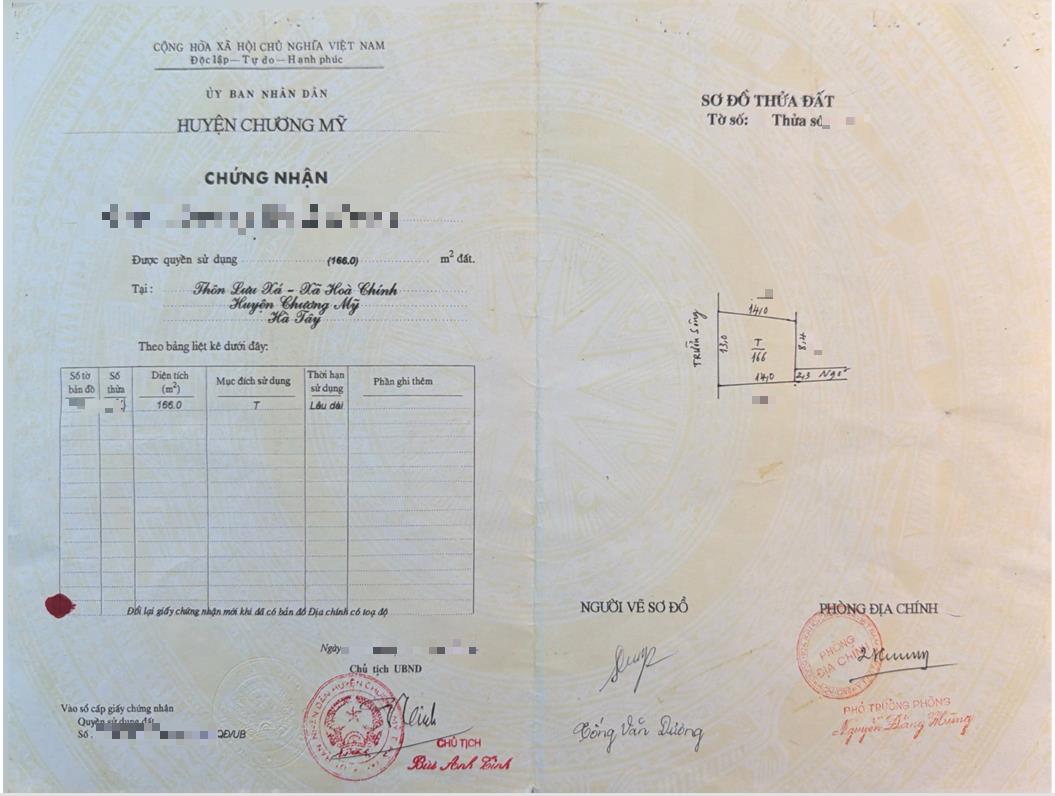 CỘNG HÒA XÃ HỘI CHỦ NGHĨA VIỆT NAM
Độc lập — Tự do — Hạnh phúc
ỦY BAN NHÂN DÂN
HUYỆN CHƯƠNG MỸ
CHỨNG NHẬN
Được quyền sử dụng (166.0) m² đất.
Tại: Thôn Lưu Xá - Xã Hoà Chính
Huyện Chương Mỹ
Hà Tây
Theo bảng liệt kê dưới đây:
Số tờ bản đồ Số thửa Diện tích (m²) Mục đích sử dụng Thời hạn sử dụng Phần ghi thêm
166.0 T Lâu dài
Đổi lại giấy chứng nhận mới khi đã có bản đồ Địa chính có toạ độ
Ngày
Chủ tịch UBND
Vào sổ cấp giấy chứng nhận
Quyền sử dụng đất
Số QĐ/UB
CHỦ TỊCH
Bùi Anh Tính
SƠ ĐỒ THỬA ĐẤT
Tờ số: Thửa số
14,0
13,0
T
166
8,4
14,0
2,3 Ngõ
NGƯỜI VẼ SƠ ĐỒ
Tống Văn Dương
PHÒNG ĐỊA CHÍNH
PHÒNG
ĐỊA CHÍNH
PHÓ TRƯỞNG PHÒNG
Nguyễn Đăng Hùng